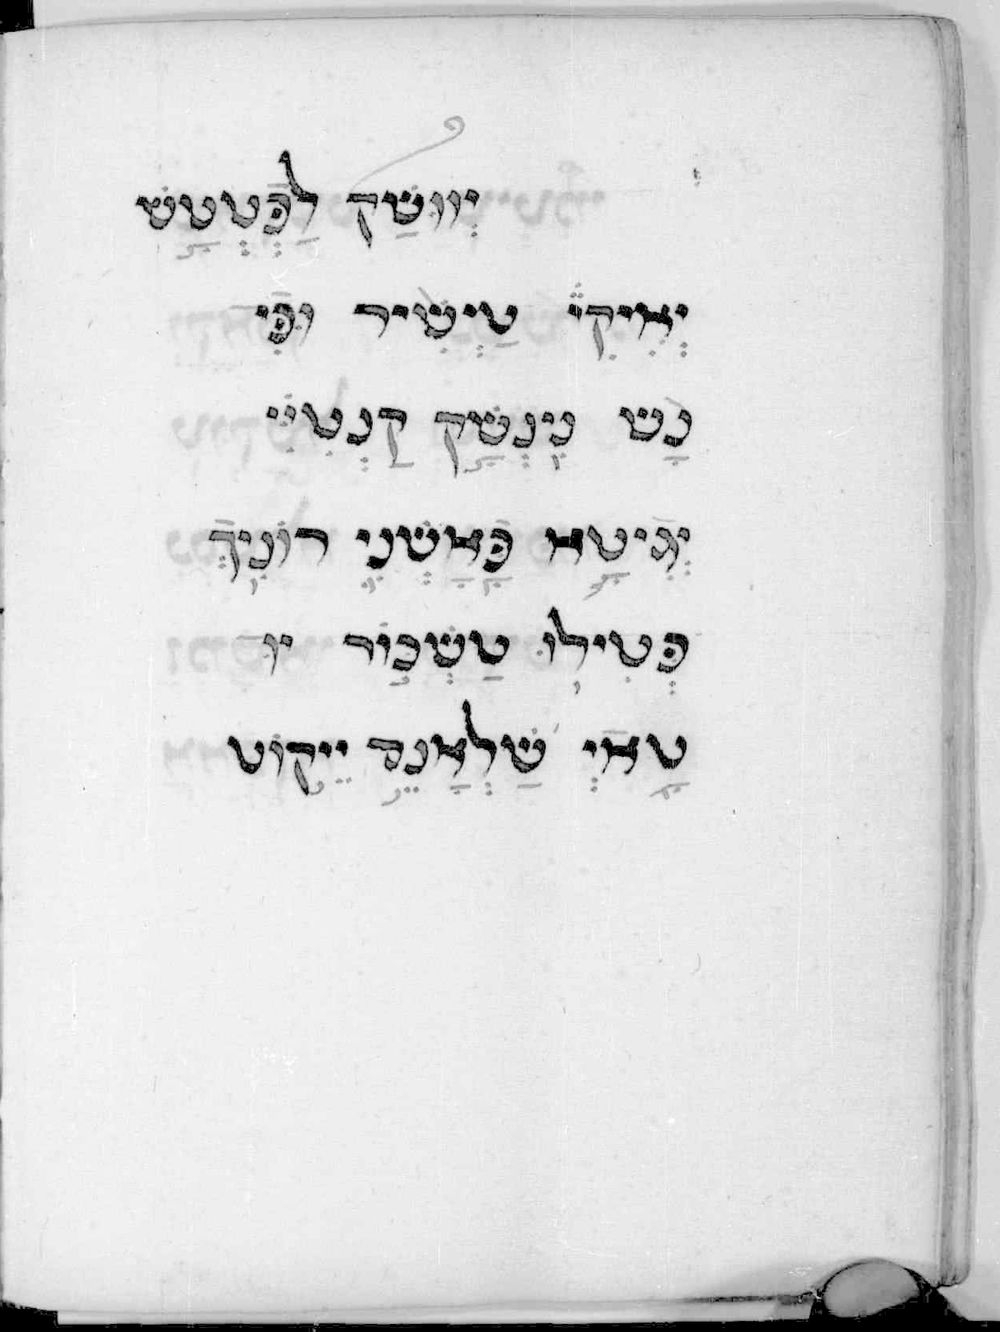 יְווּשַׁק לַפְּטְטַשׁ
יְאִיקִי טַיְשִיר וּפִּי
נָש נִינְשַׁק קַנְטִיי
יְגִיטָא פָּאַשְׁנִי רוֹנִיךְ
פְּטִילוּ טַשְׁכּוֹר יוּ
טָאיְ שַׁלְאָנֶד יֵיקוֹט